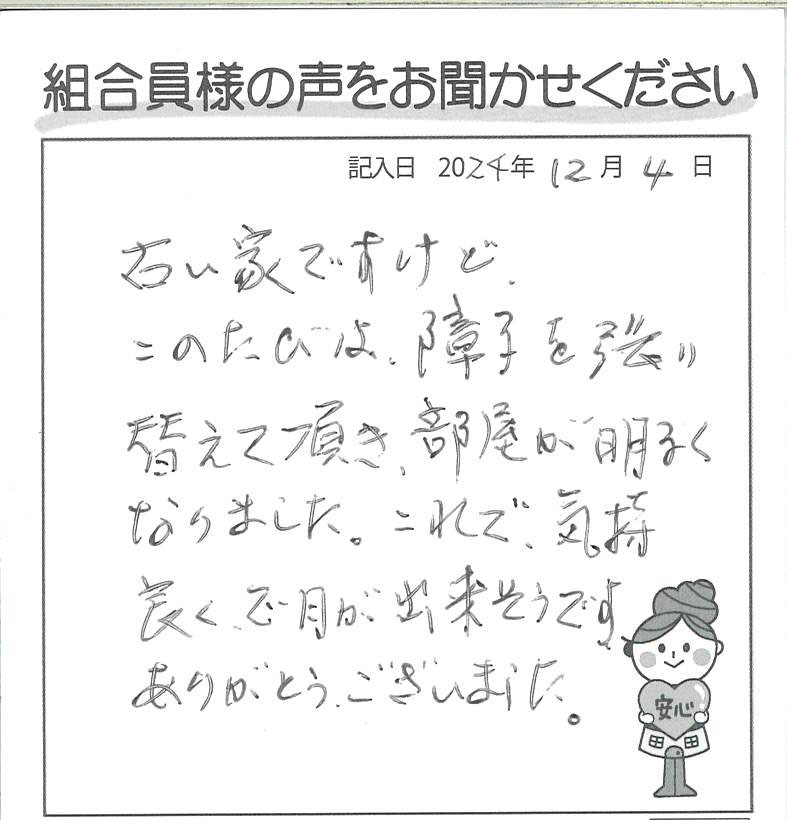 組合員様の声をお聞かせください
記入日 2024年 12月 4日
古い家ですけど、
このたびは、障子を張り
替えて頂き、部屋が明るく
なりました。これで、気持
良く、正月が出来そうです
ありがとうございました。
安心